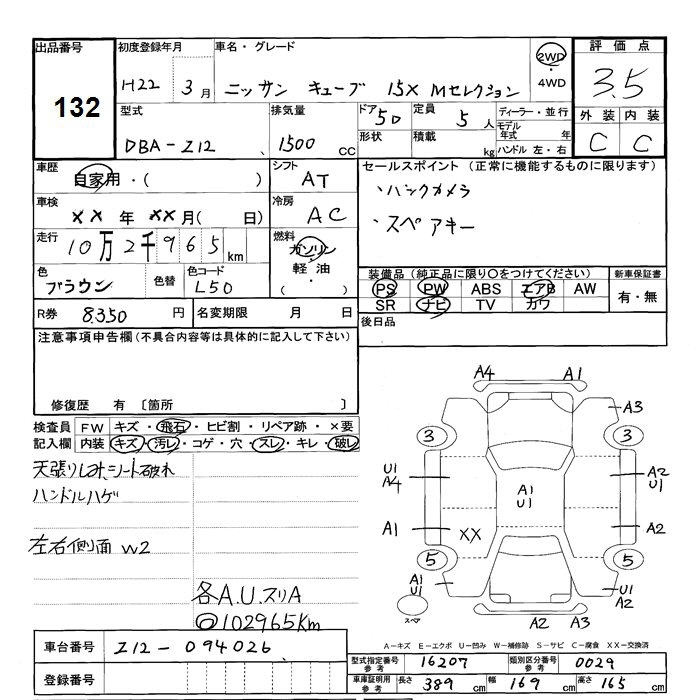 出品番号
132
初度登録年月
H22 3月
車名・グレード
ニッサン キューブ 15X Mセレクション
2WD
・
4WD
評価点
3.5
外装 内装
C C
型式
DBA-Z12
排気量
1500 cc
ドア 5D
形状
定員 5人
積載 kg
ディーラー・並行
モデル年式 年
ハンドル 左・右
車歴
自家用・( )
シフト
AT
車検
XX年 XX月( 日)
冷房
AC
走行
10万2千965km
燃料
ガソリン
軽油
・
( )
色
ブラウン
色替
色コード
L50
セールスポイント (正常に機能するものに限ります)
・バックカメラ
・スペアキー
装備品(純正品に限り○をつけてください)
PS PW ABS エアB AW
SR ナビ TV カワ
新車保証書
有・無
R券 8350円
名変期限 月 日
後日品
注意事項申告欄(不具合内容等は具体的に記入して下さい)
修復歴 有 〔箇所 〕
検査員記入欄
FW キズ・飛石・ヒビ割・リペア跡・×要
内装 キズ・汚レ・コゲ・穴・スレ・キレ・破レ
天張りしみ、シート破れ
ハンドルハゲ
左右側面 W2
各A.U.スリA
◎102965Km
A4 A1
A3
3 3
U1
A4
A2
U1
A1
U1
A1 XX A2
5 5
A1
U1
U1
A2
スペア
A2 A3
A-キズ E-エクボ U-凹み W-補修跡 S-サビ C-腐食 XX-交換済
車台番号 Z12-094026
登録番号
型式指定番号 参考 16207
類別区分番号 参考 0029
車庫証明用 参考 長さ 389cm 幅 169cm 高さ 165cm